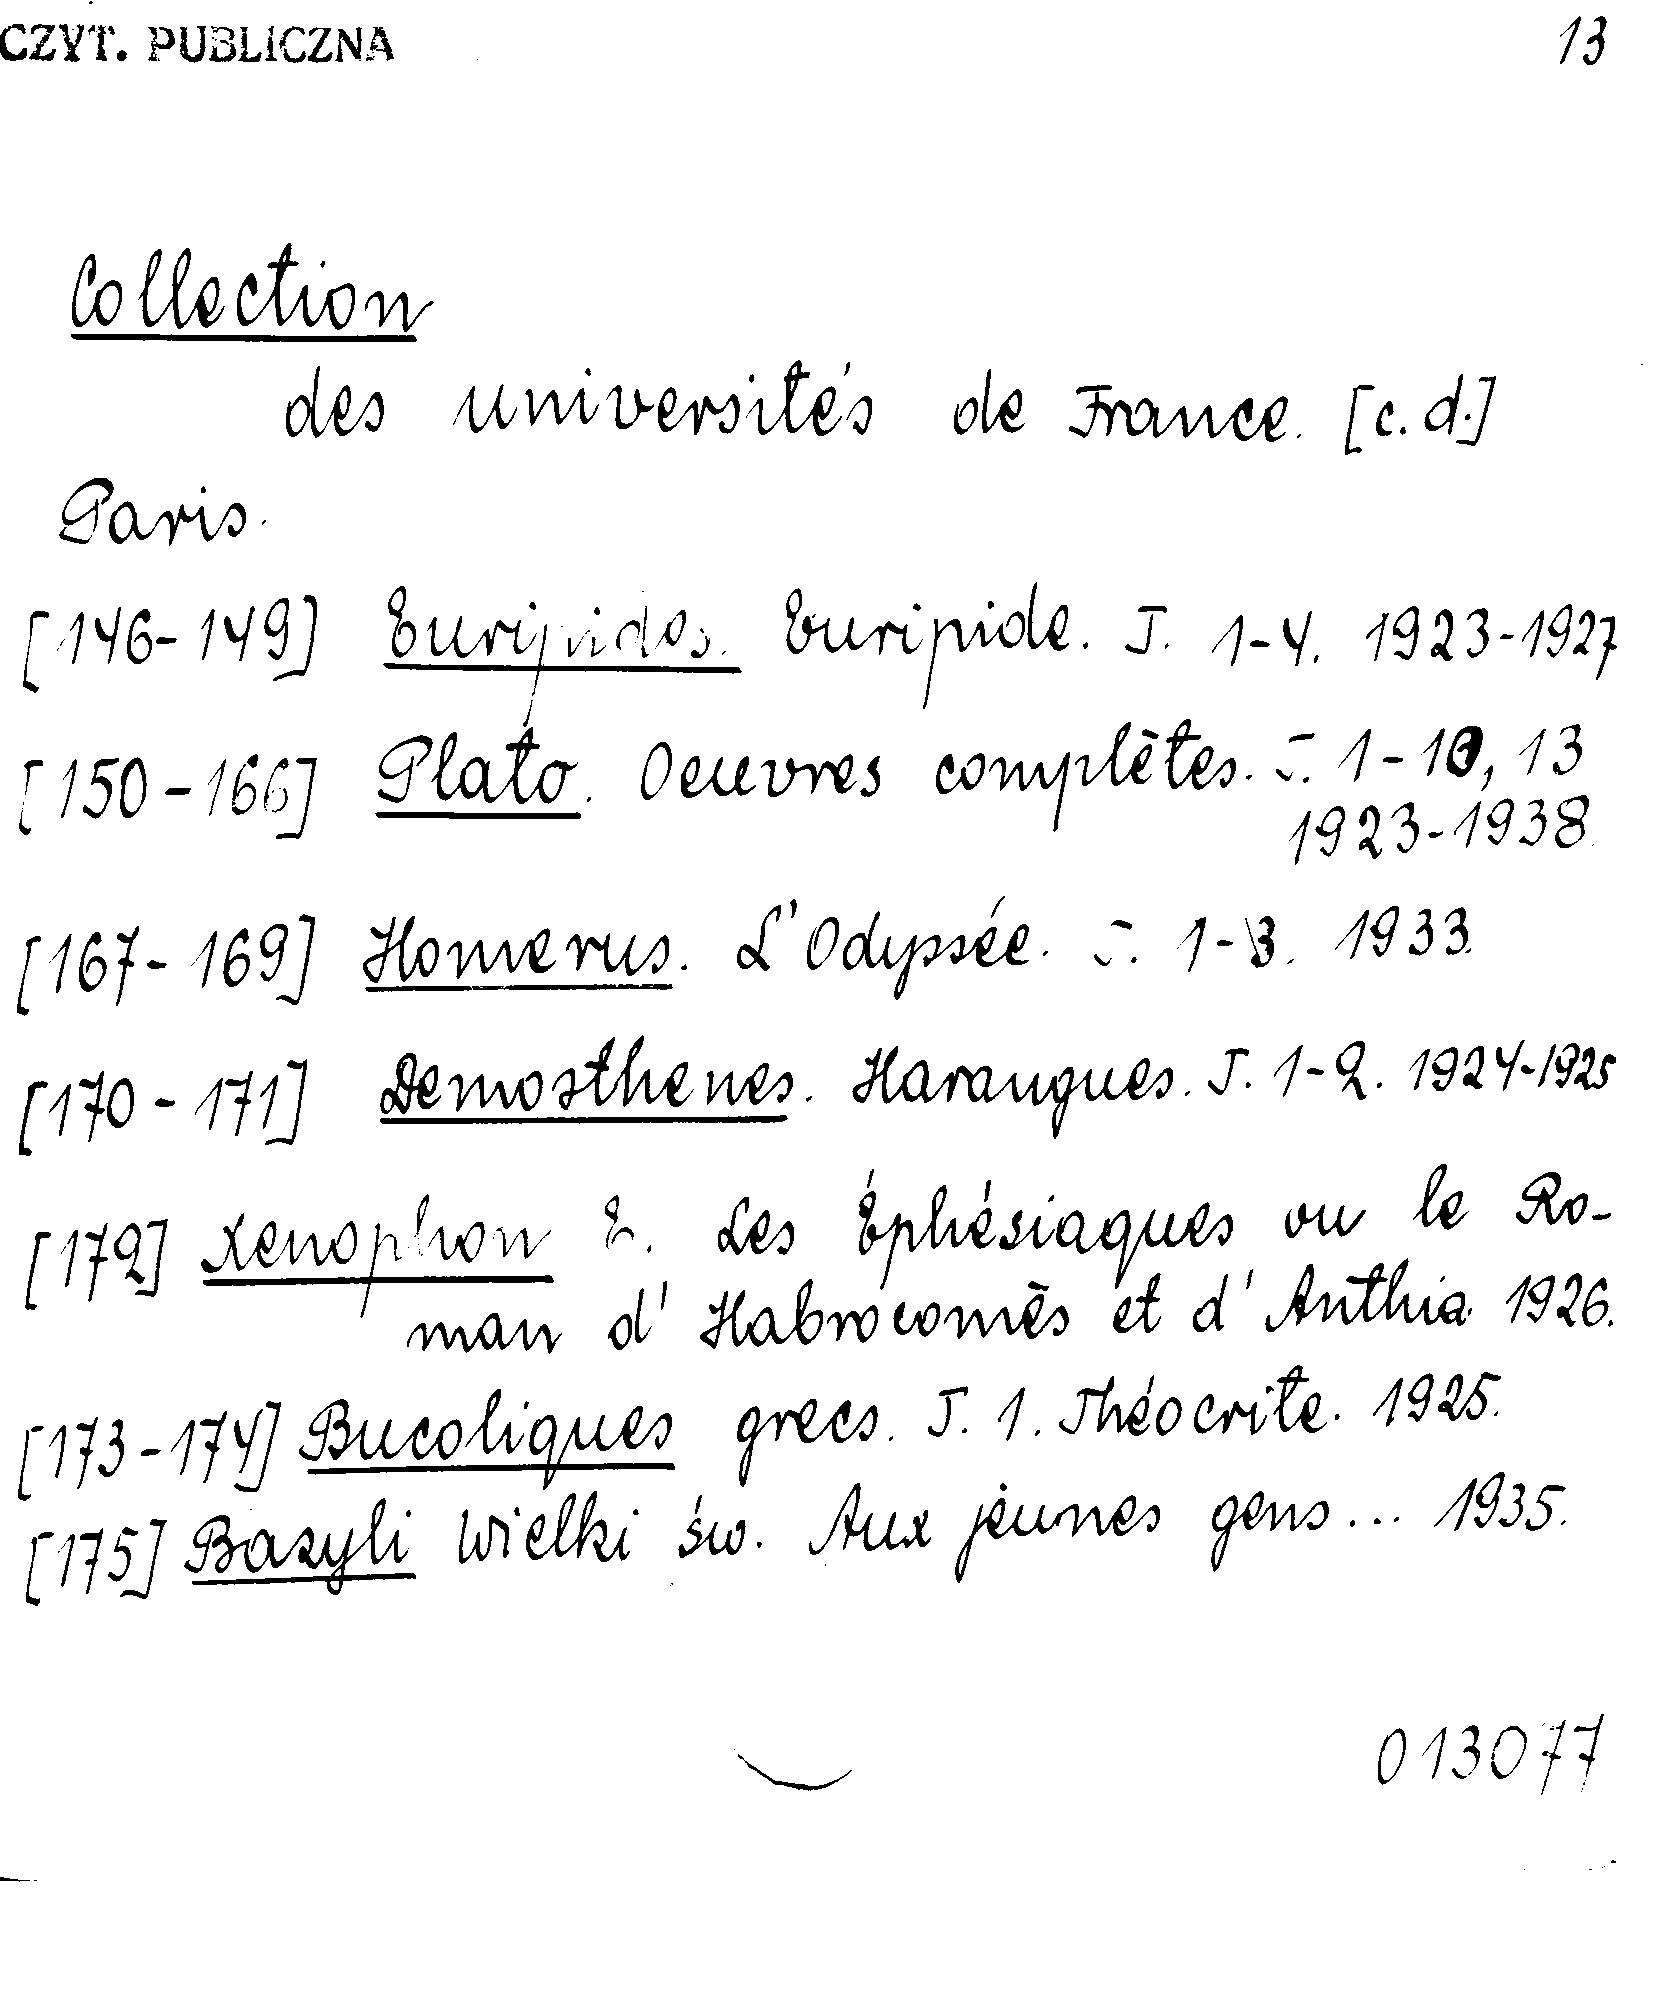 CZYT. PUBLICZNA 13
Collection
des universités de France. [c.d.]
Paris.
[146-149] Euripides. Euripide. T. 1-4. 1923-1927
[150-166] Plato. Oeuvres complètes. T. 1-10, 13
1923-1938.
[167-169] Homerus. L'Odyssée. T. 1-3. 1933.
[170-171] Demosthenes. Harangues. T. 1-2. 1924-1925
[172] Xenophon E. Les Éphésiaques ou le Ro-
man d'Habrocomès et d'Anthia 1926.
[173-174] Bucoliques grecs. T. 1. Théocrite. 1925.
[175] Bazyli Wielki św. Aux jeunes gens... 1935.
013077